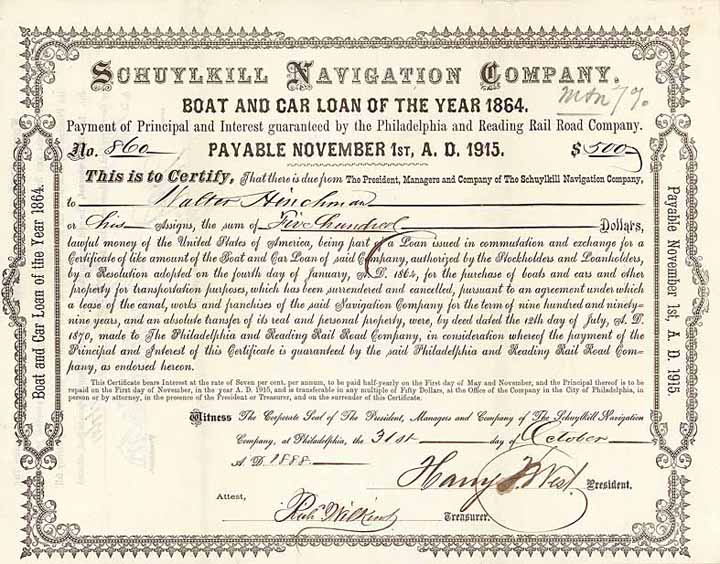 SCHUYLKILL NAVIGATION COMPANY.
BOAT AND CAR LOAN OF THE YEAR 1864.
Payment of Principal and Interest guaranteed by the Philadelphia and Reading Rail Road Company.
No. 860 PAYABLE NOVEMBER 1ST, A. D. 1915. $500
This is to Certify, That there is due from The President, Managers and Company of The Schuylkill Navigation Company,
to Walter Hinchman
or his Assigns, the sum of Five hundred Dollars,
lawful money of the United States of America, being part of a Loan issued in commutation and exchange for a
Certificate of like amount of the Boat and Car Loan of said Company, authorized by the Stockholders and Loanholders,
by a Resolution adopted on the fourth day of January, A. D. 1864, for the purchase of boats and cars and other
property for transportation purposes, which has been surrendered and cancelled, pursuant to an agreement under which
a lease of the canal, works and franchises of the said Navigation Company for the term of nine hundred and ninety-
nine years, and an absolute transfer of its real and personal property, were, by deed dated the 12th day of July, A. D.
1870, made to The Philadelphia and Reading Rail Road Company, in consideration whereof the payment of the
Principal and Interest of this Certificate is guaranteed by the said Philadelphia and Reading Rail Road Com-
pany, as endorsed hereon.
This Certificate bears Interest at the rate of Seven per cent. per annum, to be paid half-yearly on the First day of May and November, and the Principal thereof is to be
repaid on the First day of November, in the year A. D. 1915, and is transferable in any multiple of Fifty Dollars, at the Office of the Company in the City of Philadelphia, in
person or by attorney, in the presence of the President or Treasurer, and on the surrender of this Certificate.
Witness The Corporate Seal of The President, Managers and Company of The Schuylkill Navigation
Company, at Philadelphia, the 31st day of October
A. D. 1888.
Harry F. West. President.
Attest,
Rich. Wilkins Treasurer.
Boat and Car Loan of the Year 1864.
Payable November 1st, A. D. 1915.